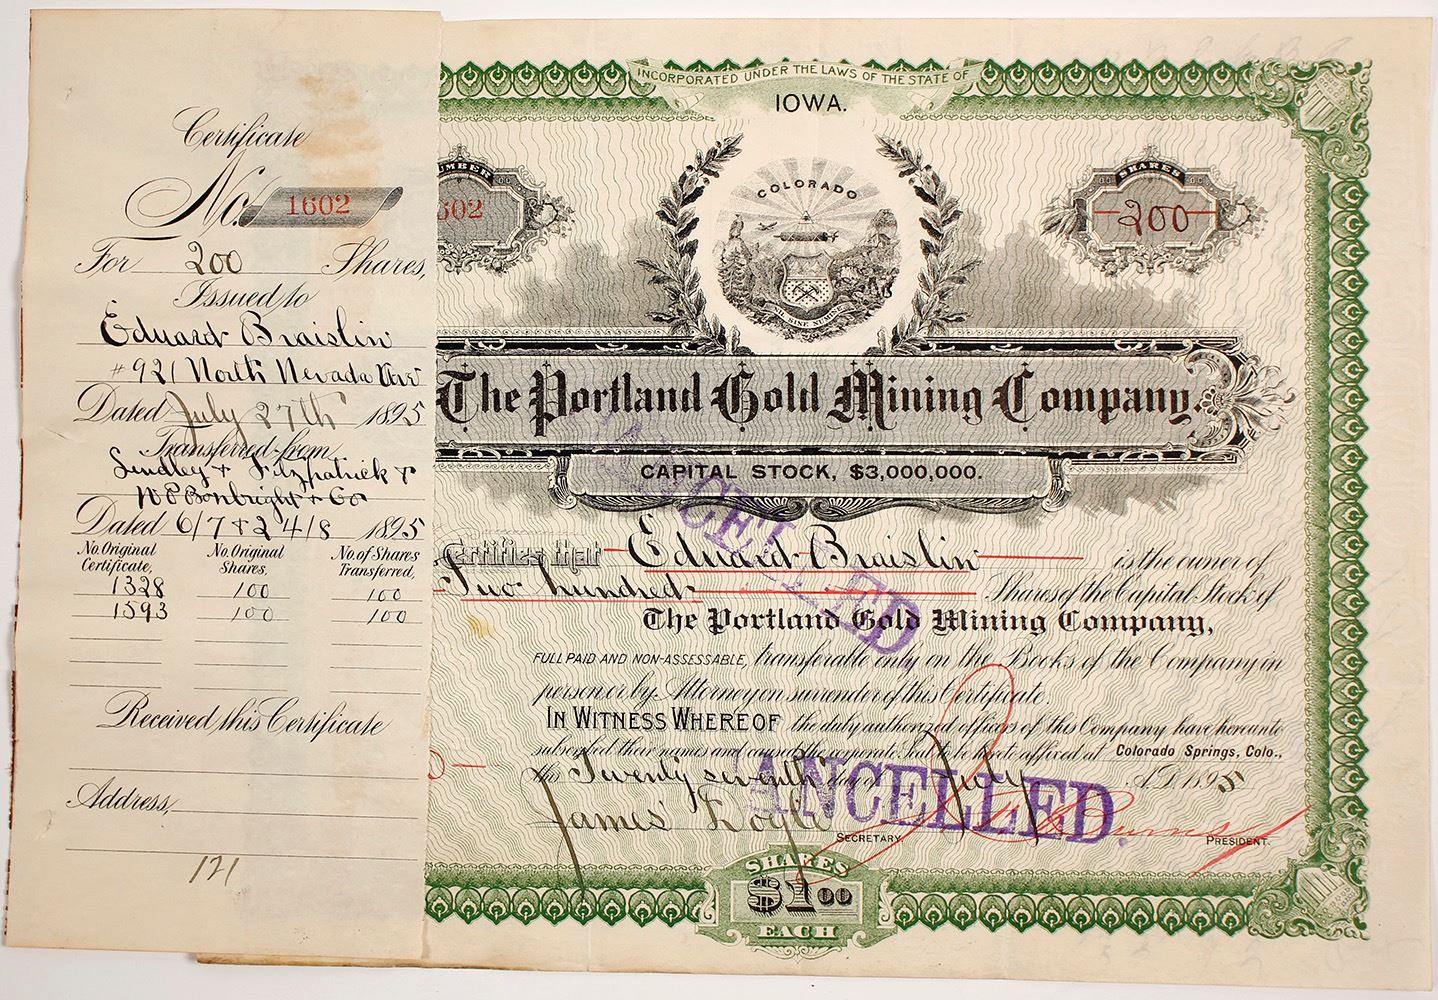 Certificate
No. 1602
For 200 Shares,
Issued to
Eduard Braislin
# 921 North Nevada Ave
Dated July 27th 1895
Transferred from
Lindley & Fitzpatrick &
W P Bonbright & Co
Dated 6/7 & 24/8 1895
No. Original Certificate, No. Original Shares, No. of Shares Transferred,
1328 100 100
1593 100 100
Received this Certificate
Address,
121
INCORPORATED UNDER THE LAWS OF THE STATE OF
IOWA.
UMBER
602
COLORADO
NIL SINE NUMINE
SHARES
200
The Portland Gold Mining Company.
CAPITAL STOCK, $3,000,000.
CANCELLED
Certifies that Eduard Braislin is the owner of
Two hundred Shares of the Capital Stock of
The Portland Gold Mining Company,
FULL PAID AND NON-ASSESSABLE, transferable only on the Books of the Company in
person or by Attorney on surrender of this Certificate.
IN WITNESS WHEREOF the duly authorized officers of this Company have hereunto
subscribed their names and caused the corporate Seal to be hereto affixed at Colorado Springs, Colo.,
this Twenty seventh day of July A.D. 1895
CANCELLED
James Doyle SECRETARY.
Burns PRESIDENT.
SHARES
$1.00
EACH